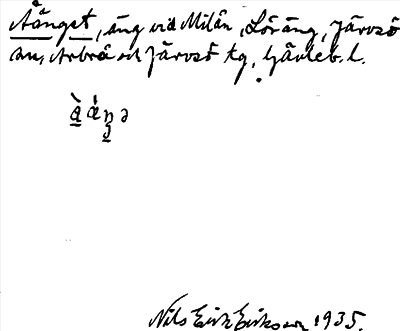 Åänget, äng vid Milån, Löräng, Järvsö
sn, Arbrå och Järvsö tg, Gävleb. l.
Nils Erik Eriksson 1935.